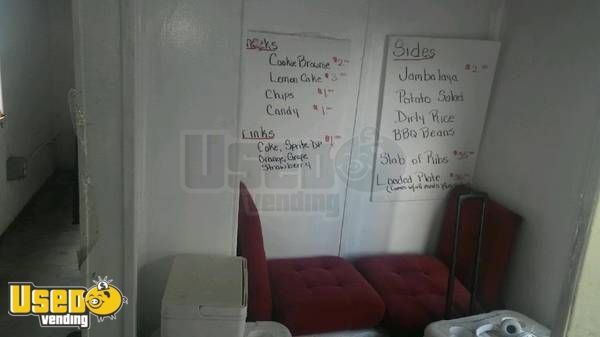 Cookie Brownie $2.00
Lemon Cake $3.00
Chips $1.00
Candy $1.00
Coke, Sprite DP $1.00
Orange, Grape
Strawberry
Sides
Jambalaya $2.00
Potato Salad
Dirty Rice
BBQ Beans
Slab of Ribs
Loaded Plate
USED
vending
USED
vending